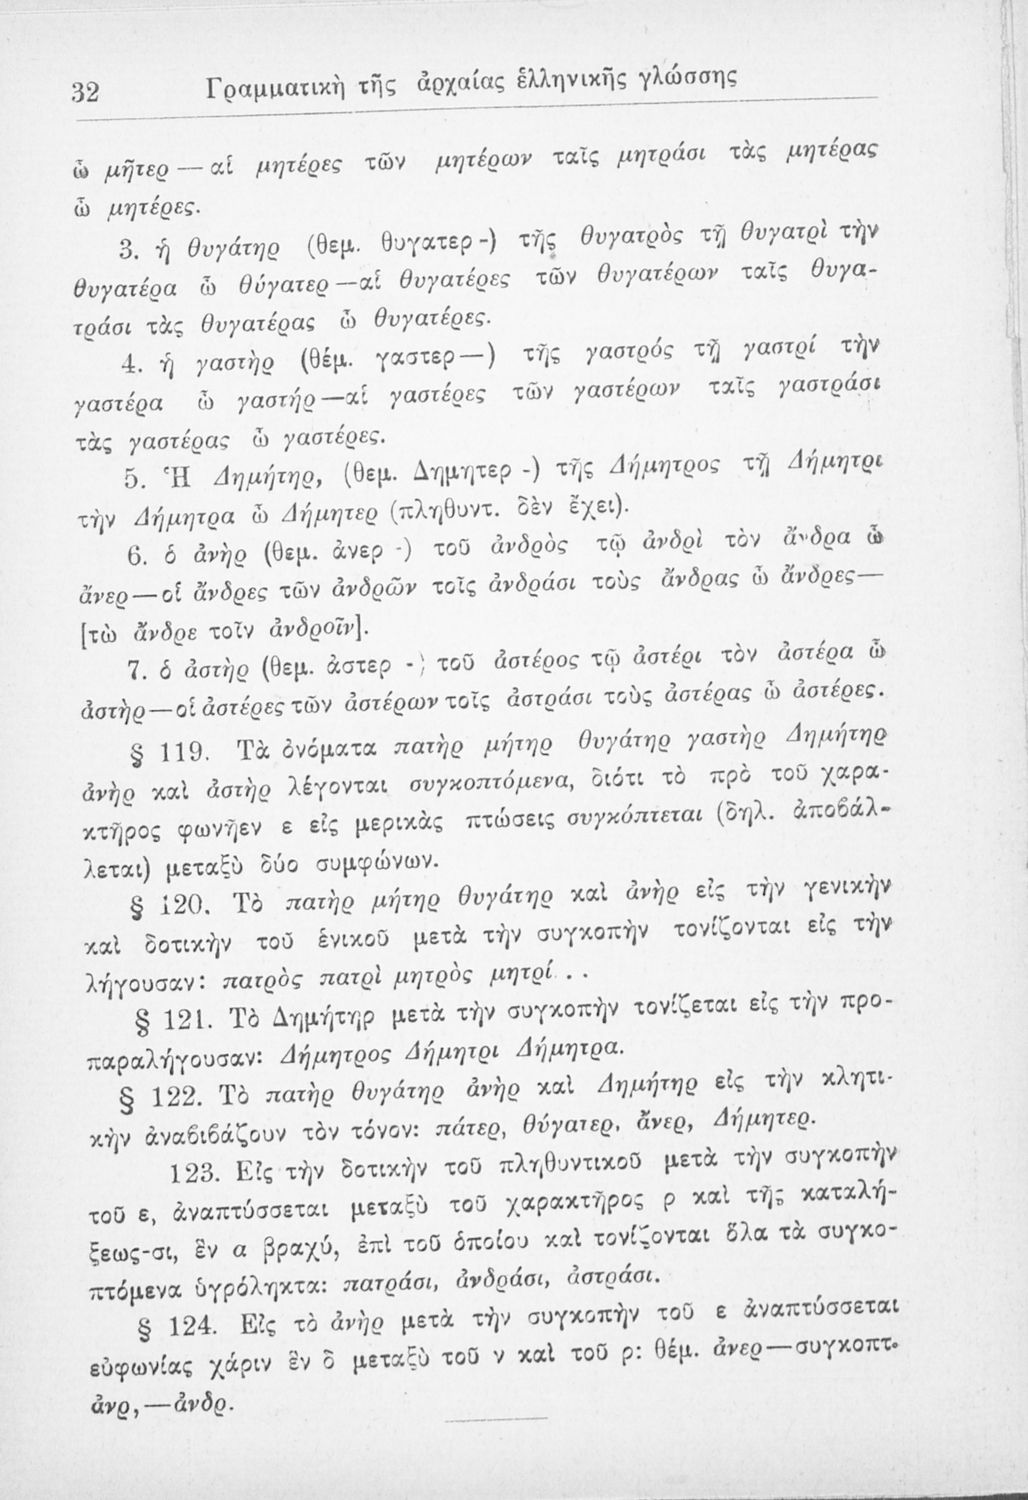 32 Γραμματικὴ τῆς ἀρχαίας ἑλληνικῆς γλώσσης
ὦ μῆτερ — αἱ μητέρες τῶν μητέρων ταῖς μητράσι τὰς μητέρας
ὦ μητέρες.
3. ἡ θυγάτηρ (θεμ. θυγατερ-) τῆς θυγατρὸς τῇ θυγατρὶ τὴν
θυγατέρα ὦ θύγατερ — αἱ θυγατέρες τῶν θυγατέρων ταῖς θυγα-
τράσι τὰς θυγατέρας ὦ θυγατέρες.
4. ἡ γαστὴρ (θέμ. γαστερ—) τῆς γαστρός τῇ γαστρί τὴν
γαστέρα ὦ γαστήρ — αἱ γαστέρες τῶν γαστέρων ταῖς γαστράσι
τὰς γαστέρας ὦ γαστέρες.
5. Ἡ Δημήτηρ, (θεμ. Δημητερ -) τῆς Δήμητρος τῇ Δήμητρι
τὴν Δήμητρα ὦ Δήμητερ (πληθυντ. δὲν ἔχει).
6. ὁ ἀνὴρ (θεμ. ἀνερ -) τοῦ ἀνδρὸς τῷ ἀνδρὶ τὸν ἄνδρα ὦ
ἄνερ — οἱ ἄνδρες τῶν ἀνδρῶν τοῖς ἀνδράσι τοὺς ἄνδρας ὦ ἄνδρες —
[τὼ ἄνδρε τοῖν ἀνδροῖν].
7. ὁ ἀστὴρ (θεμ. ἀστερ -) τοῦ ἀστέρος τῷ ἀστέρι τὸν ἀστέρα ὦ
ἀστὴρ — οἱ ἀστέρες τῶν ἀστέρων τοῖς ἀστράσι τοὺς ἀστέρας ὦ ἀστέρες.
§ 119. Τὰ ὀνόματα πατὴρ μήτηρ θυγάτηρ γαστὴρ Δημήτηρ
ἀνὴρ καὶ ἀστὴρ λέγονται συγκοπτόμενα, διότι τὸ πρὸ τοῦ χαρα-
κτῆρος φωνῆεν ε εἰς μερικὰς πτώσεις συγκόπτεται (δηλ. ἀποβάλ-
λεται) μεταξὺ δύο συμφώνων.
§ 120. Τὸ πατὴρ μήτηρ θυγάτηρ καὶ ἀνὴρ εἰς τὴν γενικὴν
καὶ δοτικὴν τοῦ ἑνικοῦ μετὰ τὴν συγκοπὴν τονίζονται εἰς τὴν
λήγουσαν: πατρὸς πατρὶ μητρὸς μητρί . . .
§ 121. Τὸ Δημήτηρ μετὰ τὴν συγκοπὴν τονίζεται εἰς τὴν προ-
παραλήγουσαν: Δήμητρος Δήμητρι Δήμητρα.
§ 122. Τὸ πατὴρ θυγάτηρ ἀνὴρ καὶ Δημήτηρ εἰς τὴν κλητι-
κὴν ἀναβιβάζουν τὸν τόνον: πάτερ, θύγατερ, ἄνερ, Δήμητερ.
123. Εἰς τὴν δοτικὴν τοῦ πληθυντικοῦ μετὰ τὴν συγκοπὴν
τοῦ ε, ἀναπτύσσεται μεταξὺ τοῦ χαρακτῆρος ρ καὶ τῆς καταλή-
ξεως-σι, ἓν α βραχύ, ἐπὶ τοῦ ὁποίου καὶ τονίζονται ὅλα τὰ συγκο-
πτόμενα ὑγρόληκτα: πατράσι, ἀνδράσι, ἀστράσι.
§ 124. Εἰς τὸ ἀνὴρ μετὰ τὴν συγκοπὴν τοῦ ε ἀναπτύσσεται
εὐφωνίας χάριν ἓν δ μεταξὺ τοῦ ν καὶ τοῦ ρ: θέμ. ἀνερ — συγκοπτ.
ἀνρ, — ἀνδρ.